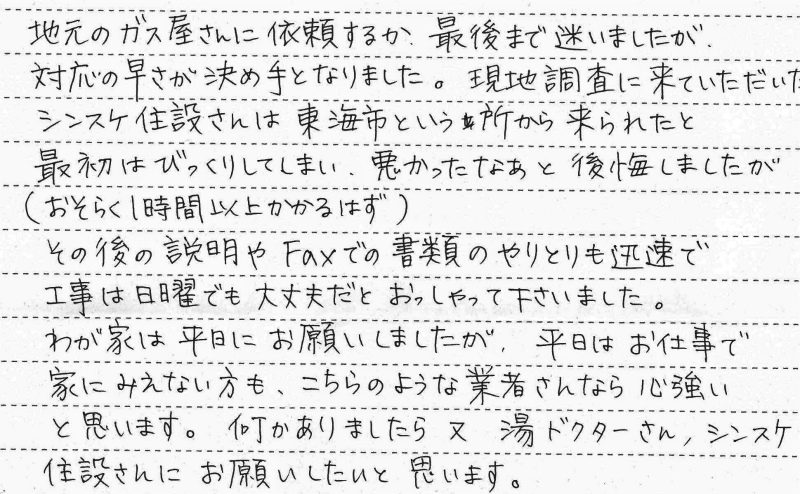 地元のガス屋さんに依頼するか、最後まで迷いましたが、
対応の早さが決め手となりました。現地調査に来ていただいた
シンスケ住設さんは東海市という所から来られたと
最初はびっくりしてしまい、悪かったなあと後悔しましたが
(おそらく1時間以上かかるはず)
その後の説明やFaxでの書類のやりとりも迅速で
工事は日曜でも大丈夫だとおっしゃって下さいました。
わが家は平日にお願いしましたが、平日はお仕事で
家にみえない方も、こちらのような業者さんなら心強い
と思います。何かありましたら又湯ドクターさん,シンスケ
住設さんにお願いしたいと思います。